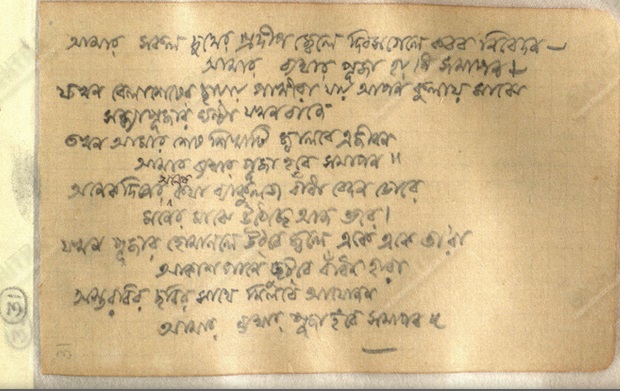 আমার সকল দুখের প্রদীপ জ্বেলে দিবস গেলে করব নিবেদন—
আমার ব্যথার পূজা হয় নি সমাপন।
যখন বেলাশেষের ছায়ায় পাখীরা যায় আপন কুলায় মাঝে
সন্ধ্যাপূজার ঘণ্টা যখন বাজে
তখন আমার শেষ শিখাটি জ্বালবে এজীবন
আমার ব্যথার পূজা হবে সমাপন॥
অনেক দিনের অনেক কথা ব্যাকুলতা বাঁধা বেদন ডোরে
মনের মাঝে উঠেছে আজ ভরে।
যখন পূজার হোমানলে উঠবে জ্বলে একে একে তারা
আকাশ পানে ছুটবে বাঁধন হারা
অস্তরবির ছবির সাথে মিলবে আয়োজন
আমার ব্যথার পূজা হবে সমাপন॥
31
31